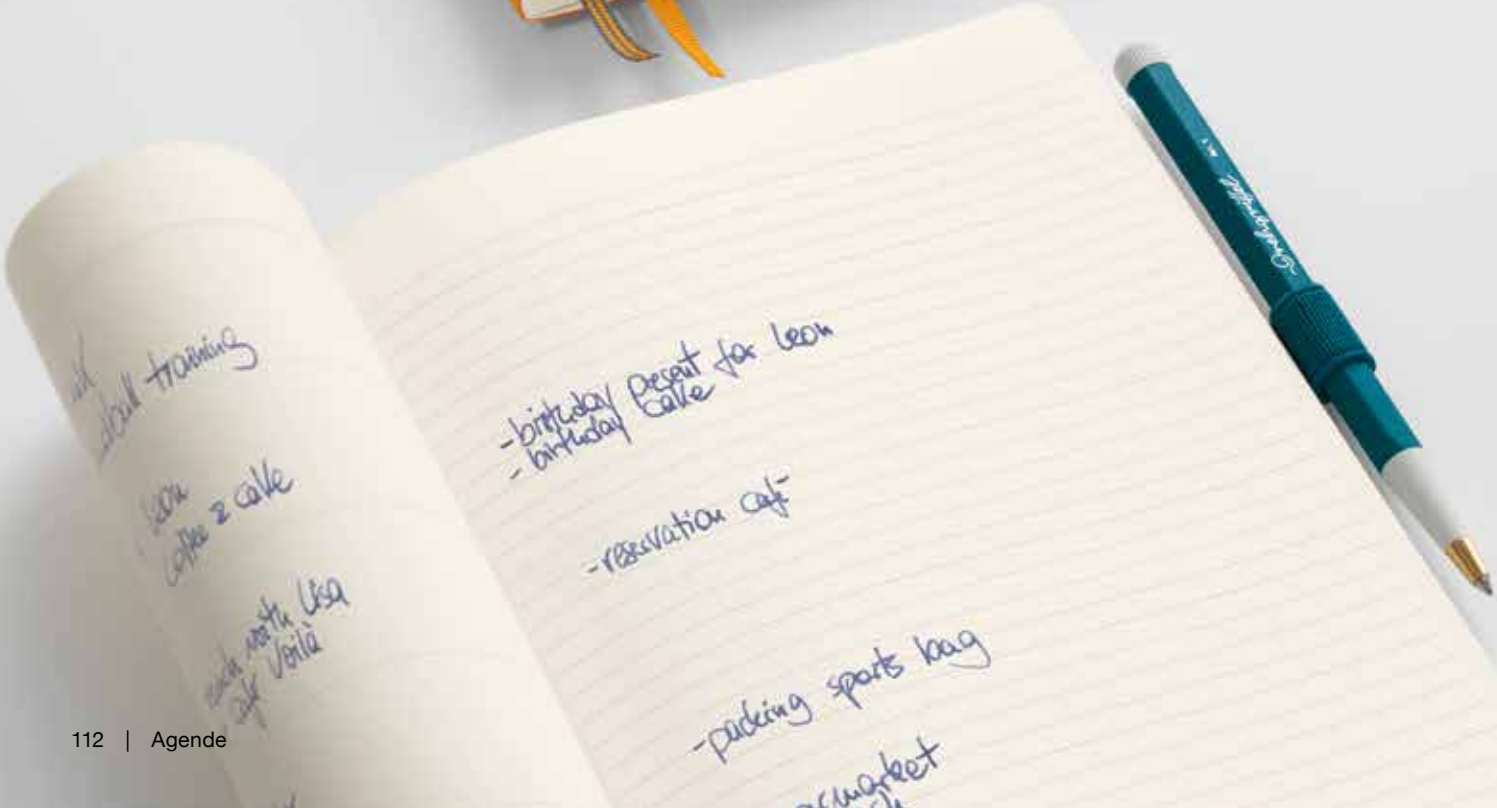 training
Leon
coffee & cake
with Lisa
Voilà
-birthday present for Leon
- birthday cake
-reservation café
-packing sports bag
Drehgriffel
112 | Agende